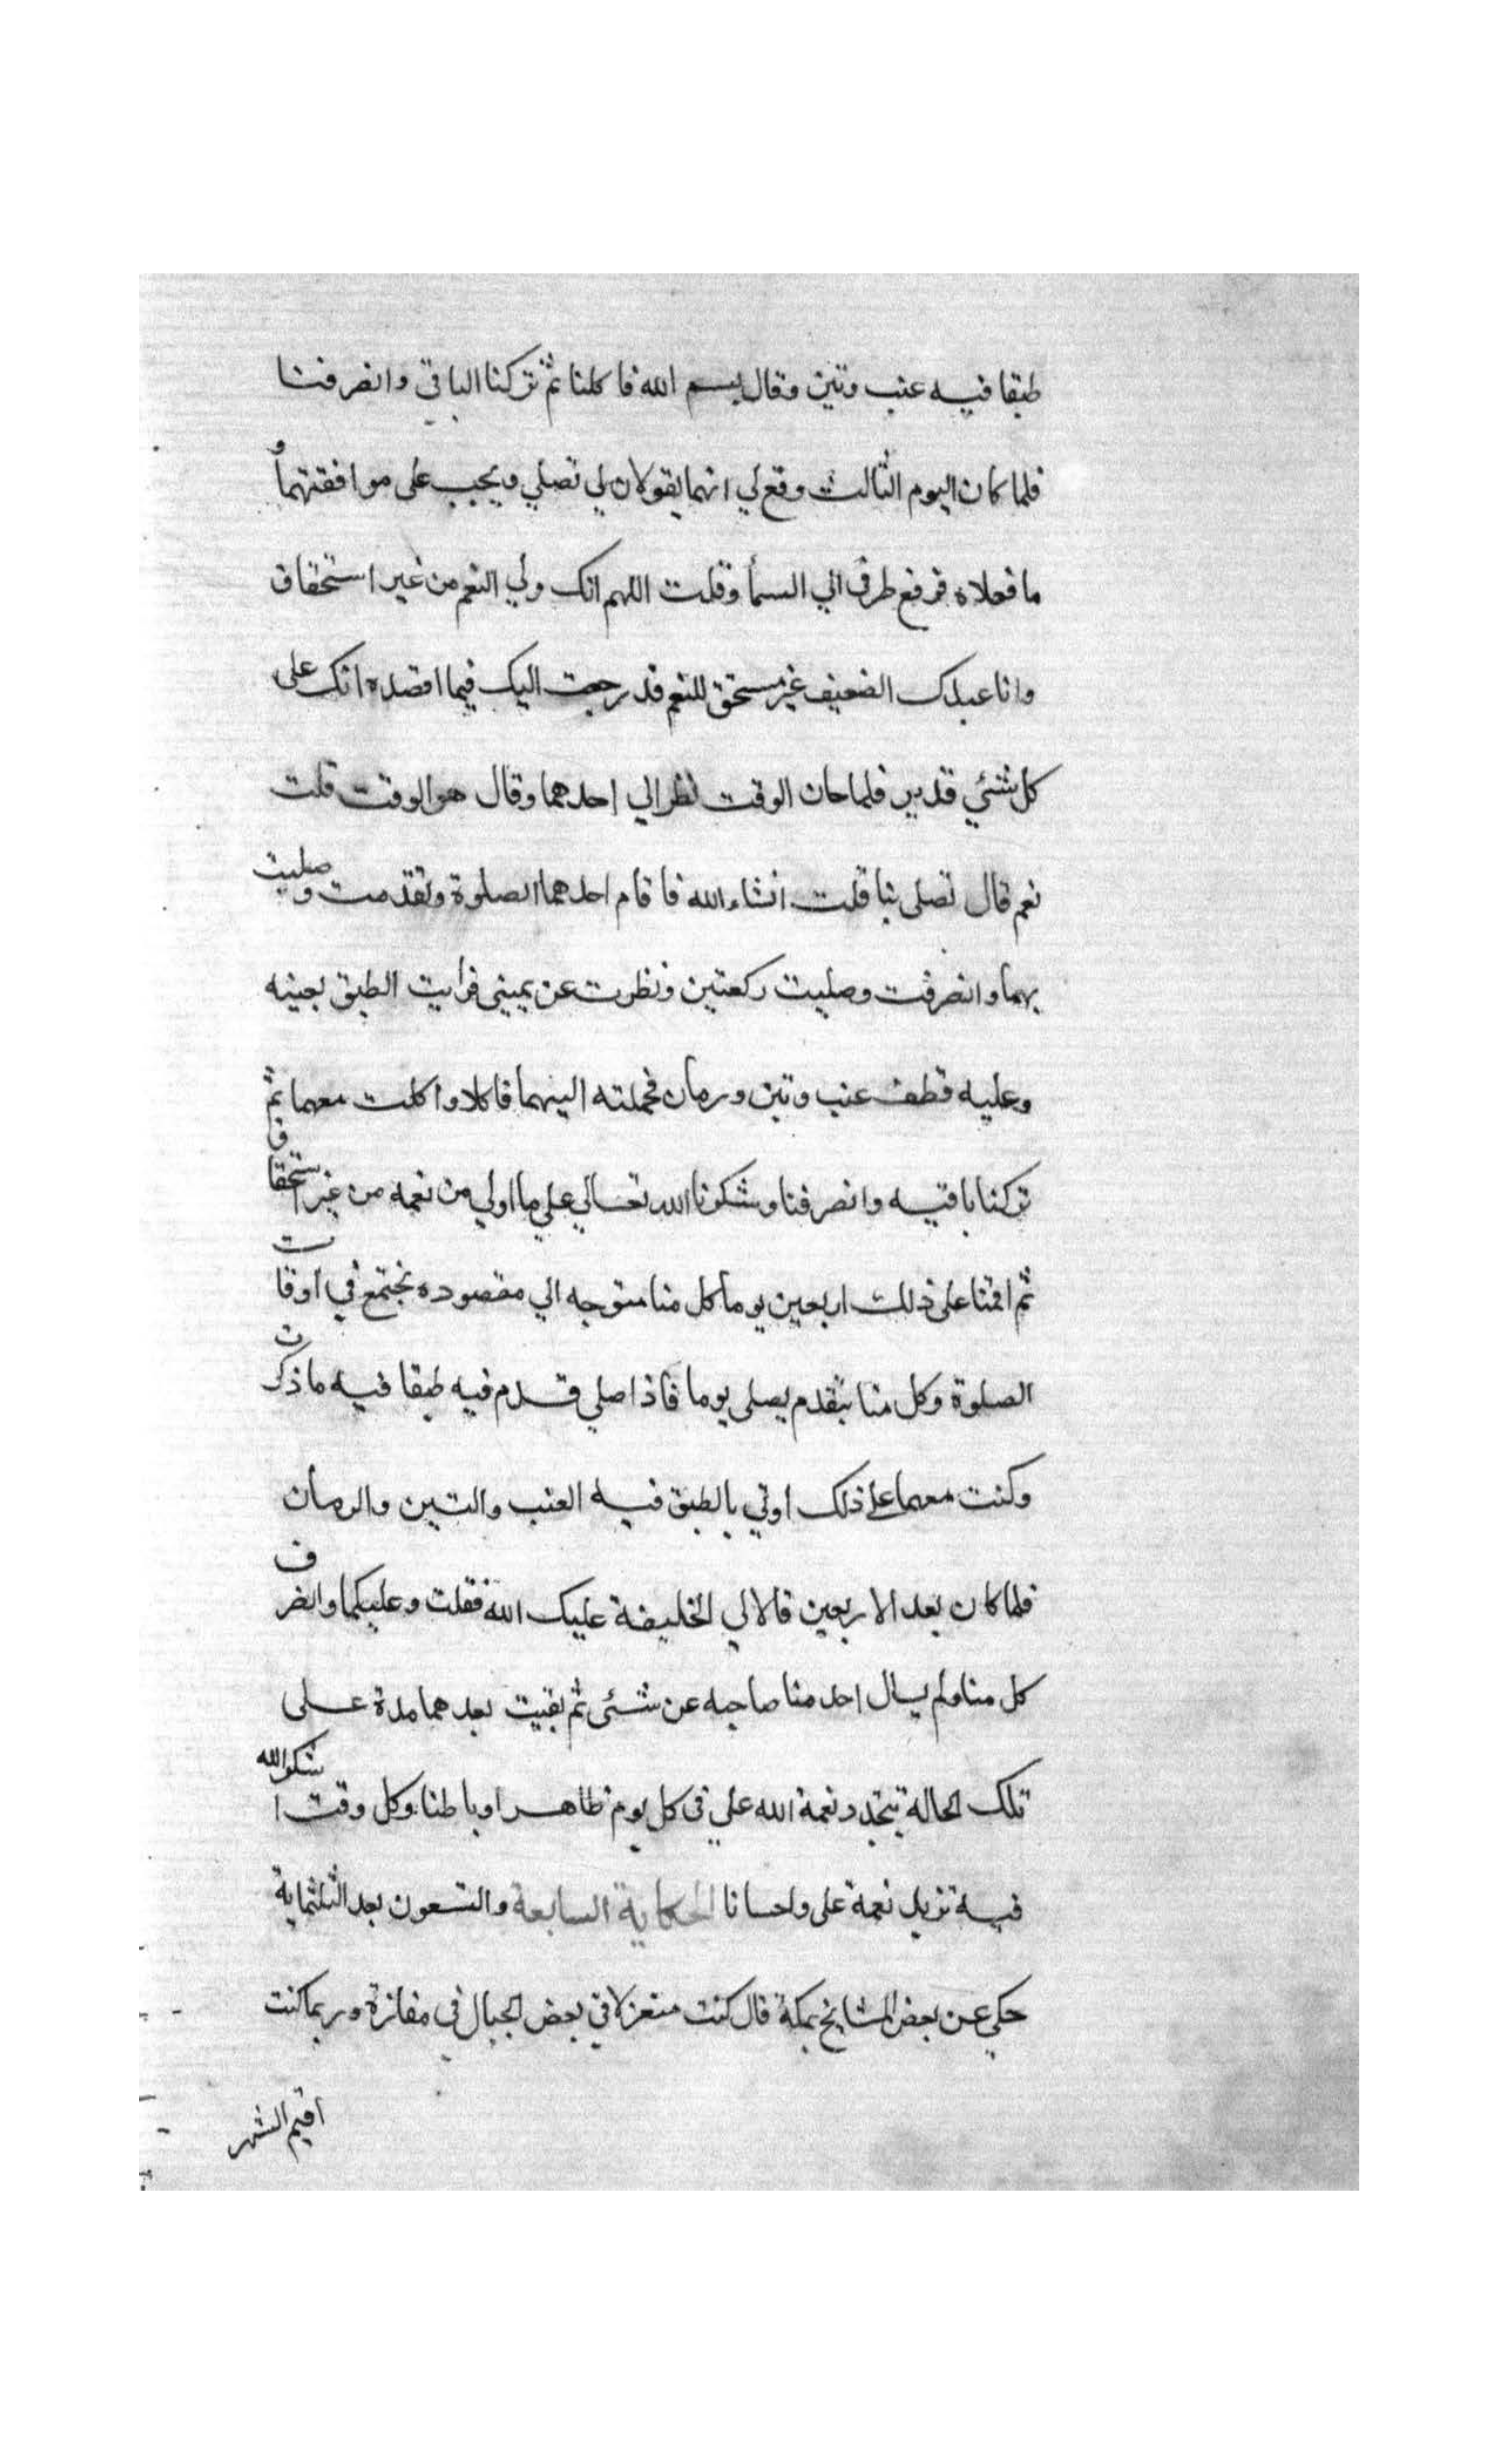 طبقا فيه عنب وتين وقال بسم الله فاكلنا ثم تركنا الباقي وانصرفنا
فلما كان اليوم الثالث وقع لي انهما يقولان لي تصلي ويجب على موافقتهما و
ما فعلاه فرفع طرفي الي السمأ وقلت اللهم انك ولي النعم من غير استحقاق
وانا عبدك الضعيف غير مستحق للنعم قد رجعت اليك فيما اقصده انك على
كل شئي قدير فلما حان الوقت نظر الي احدهما وقال هو الوقت قلت
نعم قال تصلى بنا قلت انشاء الله فاقام احدهما الصلوة وتقدمت وصليت
بهما وانصرفت وصليت ركعتين ونظرت عن يميني فرايت الطبق بعينه
وعليه قطف عنب وتين ورمان فحملته اليهما فاكلا واكلت معهما ثم
تركنا باقيه وانصرفنا وشكرنا الله تعالي علي ما اولي من نعمه من غير استحقاق
ثم اقمنا على ذلك اربعين يوما كل منا متوجه الي مقصوده نجتمع في اوقات
الصلوة وكل منا يتقدم يصلى يوما فاذا صلي قدم فيه طبقا فيه ما ذكرت
وكنت معهما على ذلك اوتي بالطبق فيه العنب والتين والرمان
فلما كان بعد الاربعين قالا لي الخليفة عليك الله فقلت وعليكما وانصرف
كل منا ولم يسال احد منا صاحبه عن شئى ثم بقيت بعدهما مدة على
تلك الحالة تتجدد نعمة الله علي في كل يوم ظاهرا وباطنا وكل وقت اشكر الله
فيه تزيد نعمة على واحسانا الحكاية السابعة والتسعون بعد الثلثماية
حكي عن بعض المشايخ بمكة قال كنت منعزلا في بعض الجبال في مفازة وربما كنت
اقيم الشهر